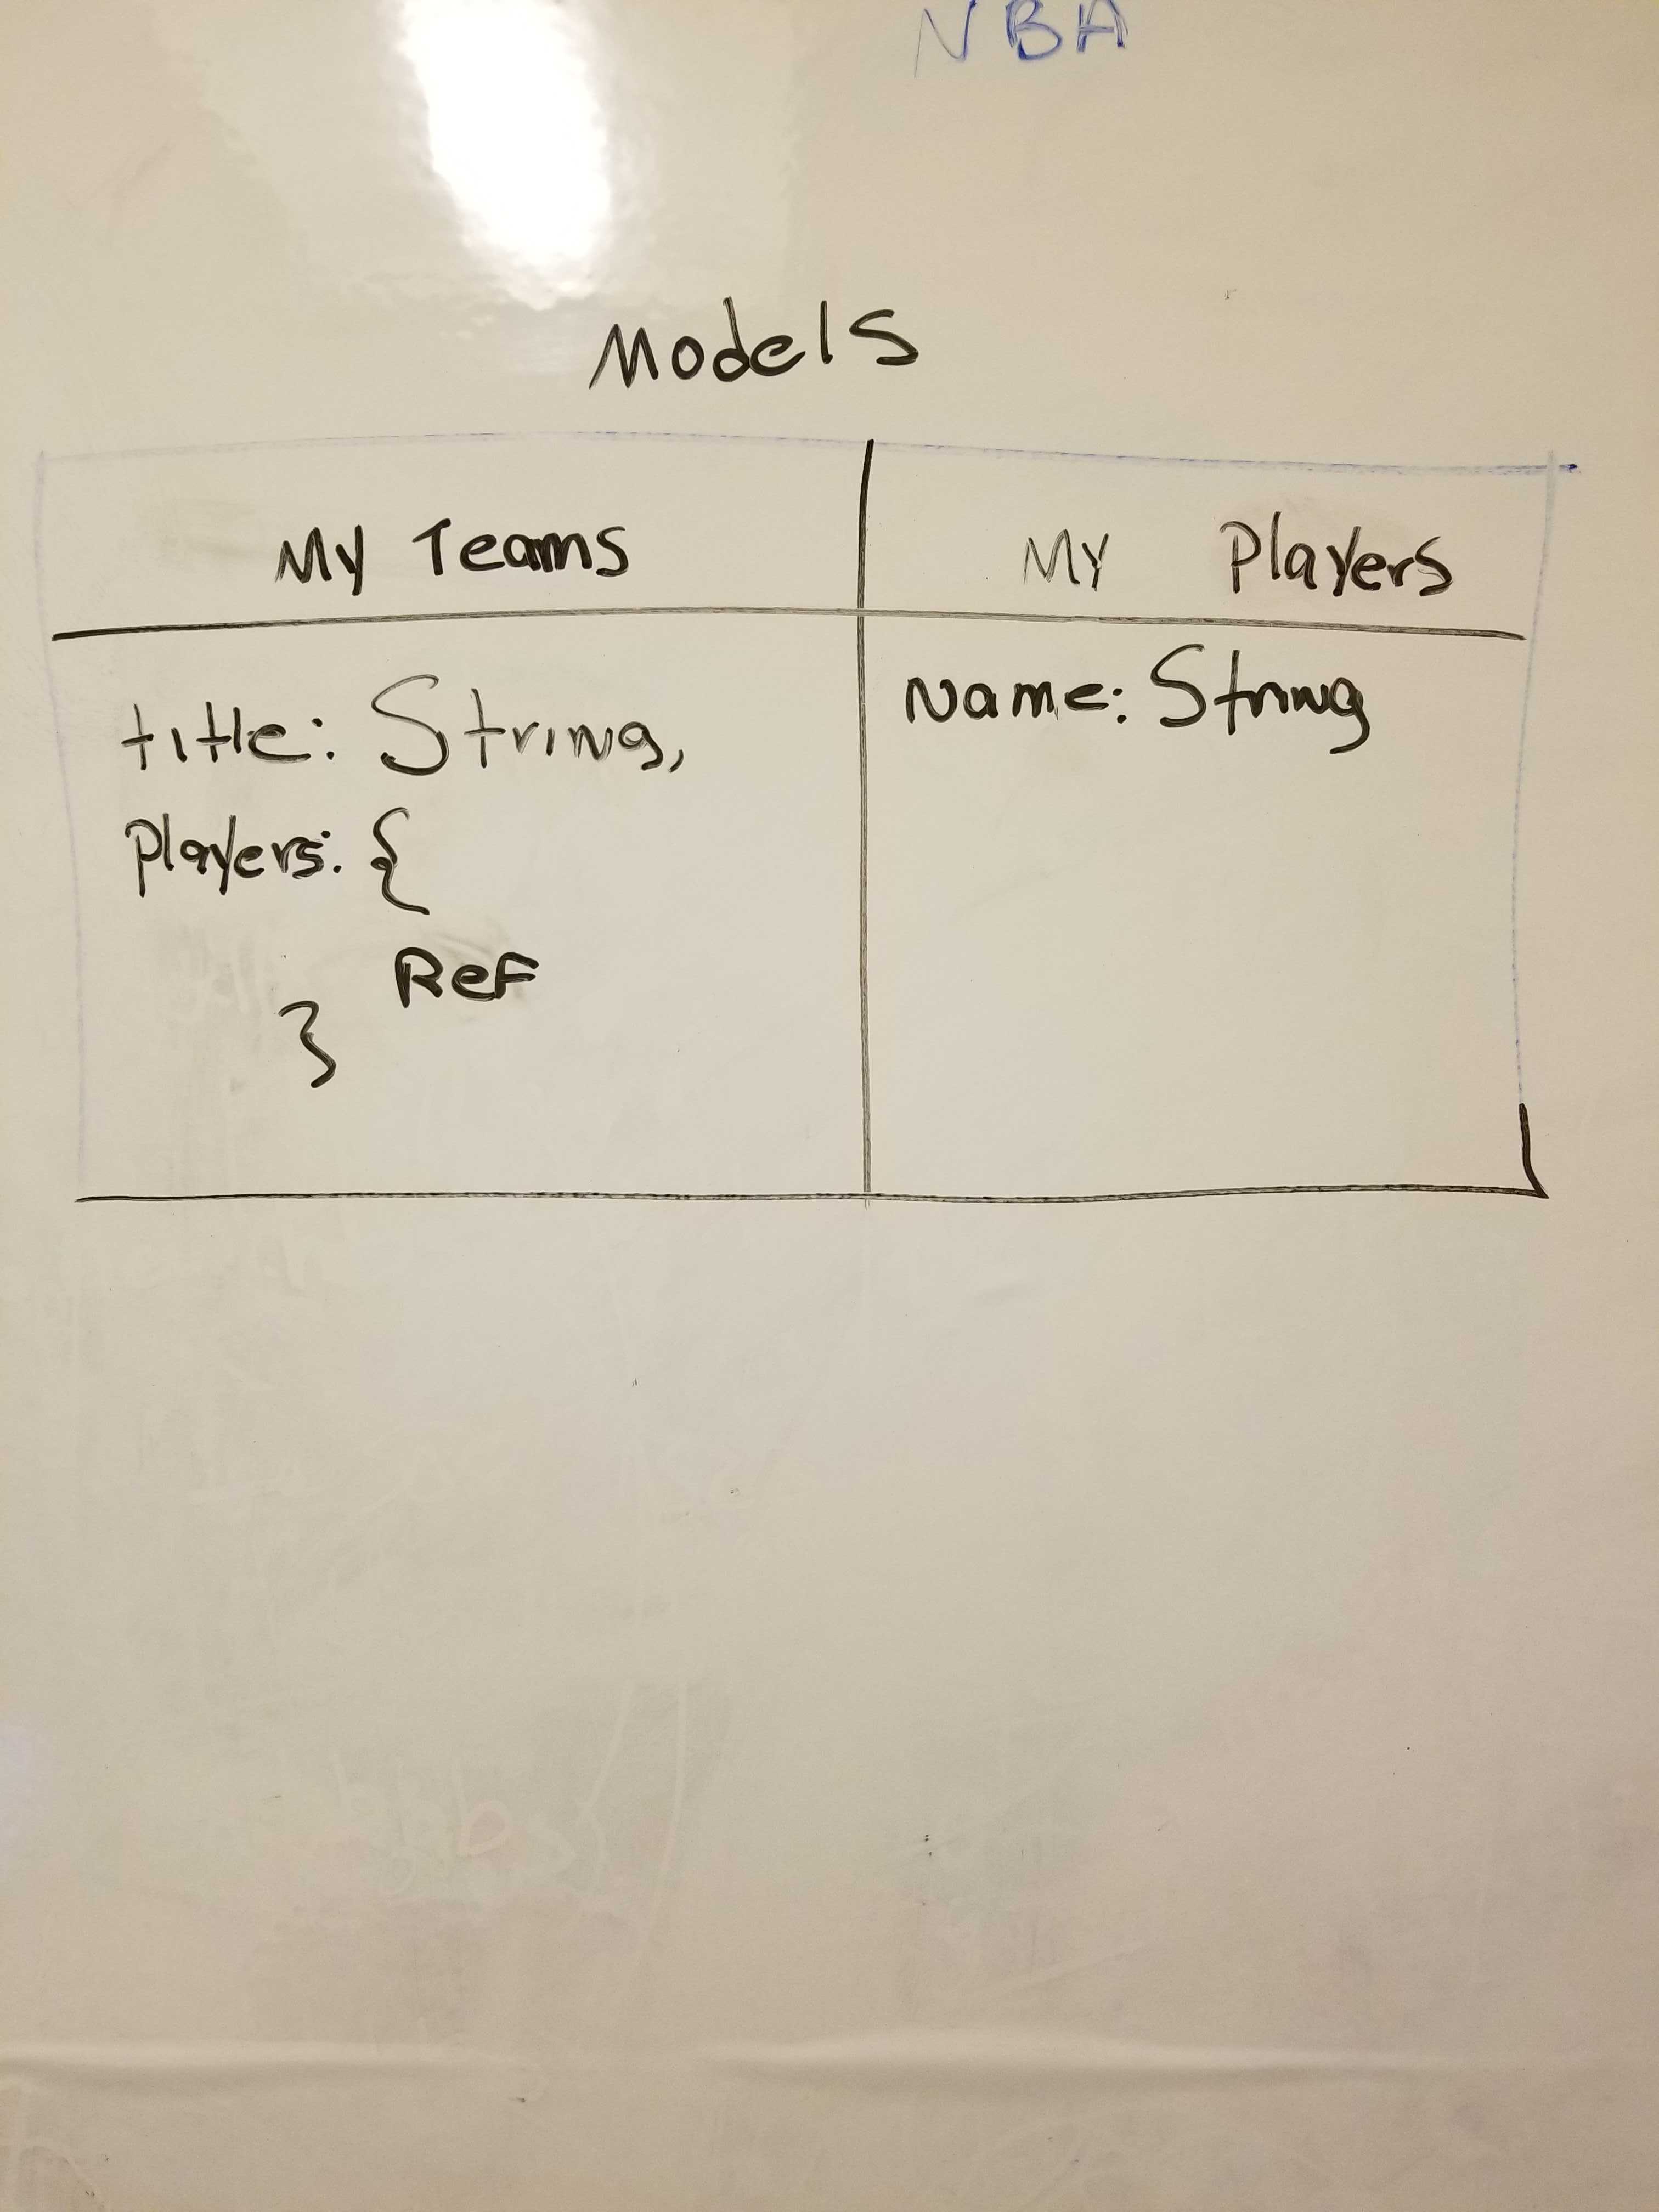 NBA
Models
My Teams
My Players
title: String,
Players: {
Ref
}
Name: String